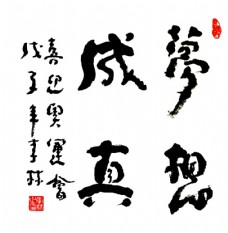 夢想
成真
喜迎奧運會
戊子年李林